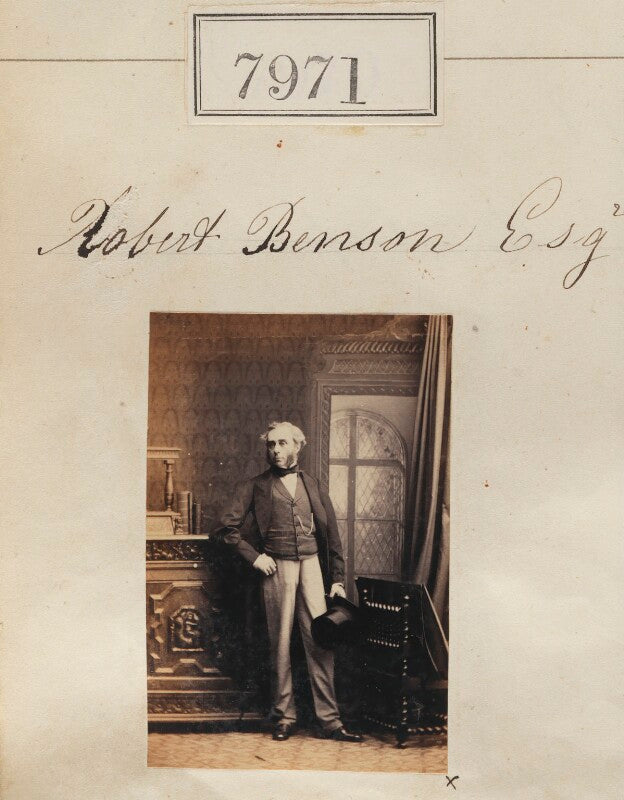 7971
Robert Benson Esqr
x